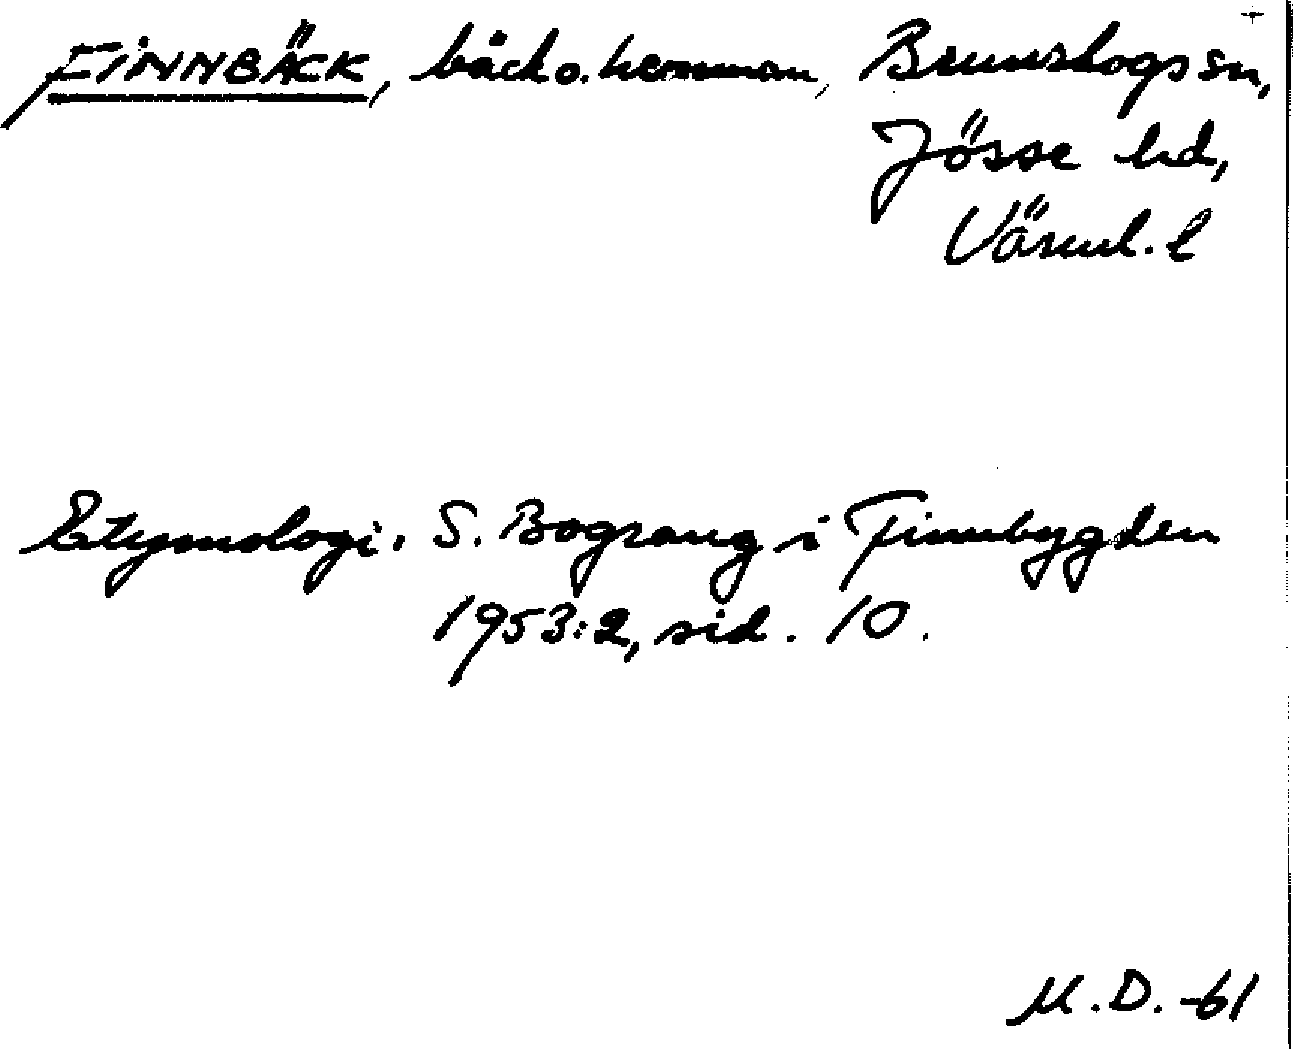 FINNBÄCK, bäck o. hemman, Brunskogs sn,
Jösse hd,
Värml. l
Etymologi. S. Bograng i Finnbygden
1953:2, sid. 10.
M.D. -61